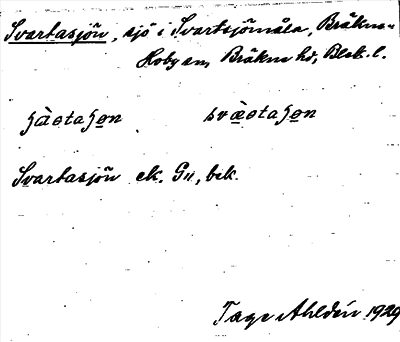 Svartasjön, sjö i Svartsjömåla, Bräkne-
Hoby sn, Bräkne hd, Blek. l.
svæ̀ətaʃo̲n
Svartasjön ek. Gn, bek.
Tage Ahldén 1929